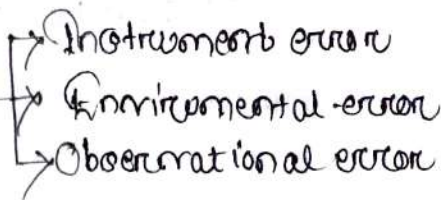 Instrument error
Enviromental error
Observational error